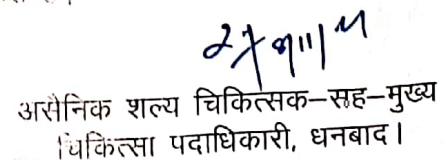 असैनिक शल्य चिकित्सक-सह-मुख्य
चिकित्सा पदाधिकारी, धनबाद।